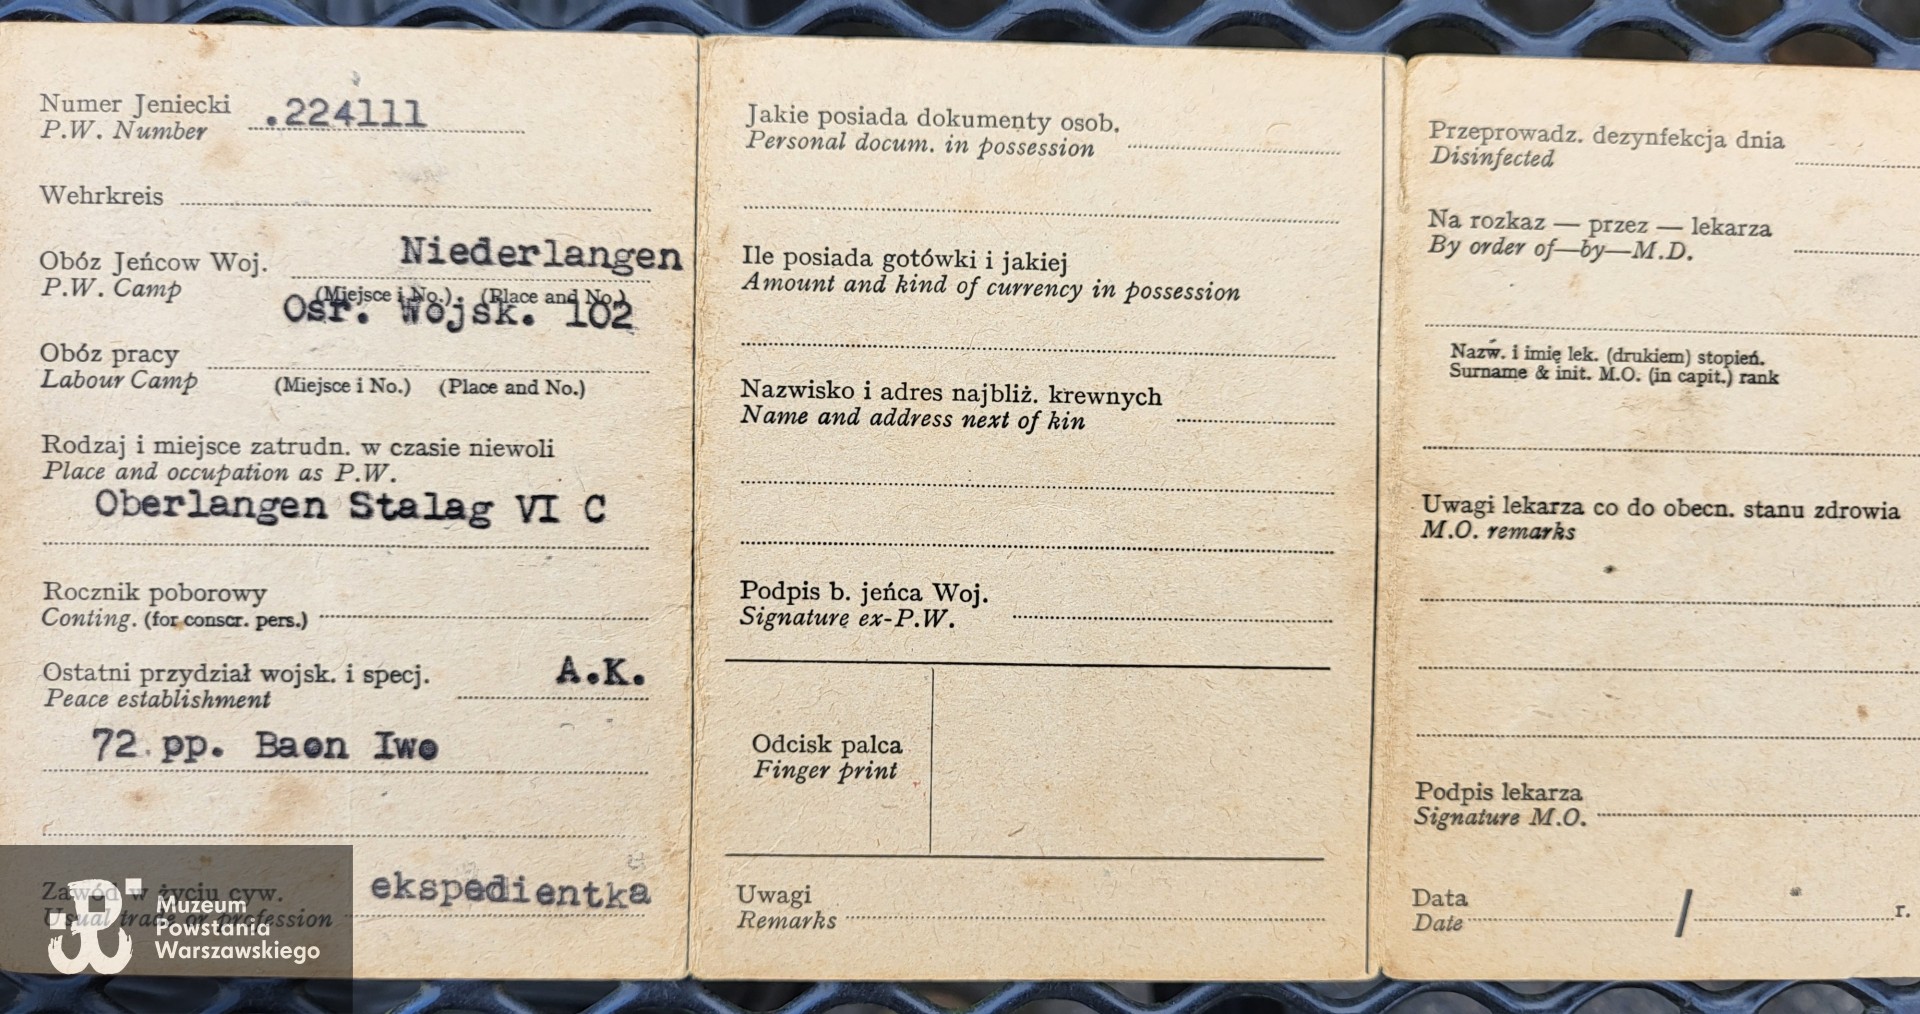 Numer Jeniecki .224111
P.W. Number
Wehrkreis
Niederlangen
Obóz Jeńcow Woj.
P.W. Camp
(Miejsce i No.) (Place and No.)
Osr. Wojsk. 102
Obóz pracy
Labour Camp (Miejsce i No.) (Place and No.)
Rodzaj i miejsce zatrudn. w czasie niewoli
Place and occupation as P.W.
Oberlangen Stalag VI C
Rocznik poborowy
Conting. (for conscr. pers.)
Ostatni przydział wojsk. i specj. A.K.
Peace establishment
72 pp. Baon Iwo
Zawód w życiu cyw. ekspedientka
Usual trade or profession
Muzeum
Powstania
Warszawskiego
Jakie posiada dokumenty osob.
Personal docum. in possession
Ile posiada gotówki i jakiej
Amount and kind of currency in possession
Nazwisko i adres najbliż. krewnych
Name and address next of kin
Podpis b. jeńca Woj.
Signature ex-P.W.
Odcisk palca
Finger print
Uwagi
Remarks
Przeprowadz. dezynfekcja dnia
Disinfected
Na rozkaz — przez — lekarza
By order of—by—M.D.
Nazw. i imię lek. (drukiem) stopień.
Surname & init. M.O. (in capit.) rank
Uwagi lekarza co do obecn. stanu zdrowia
M.O. remarks
Podpis lekarza
Signature M.O.
Data / r.
Date